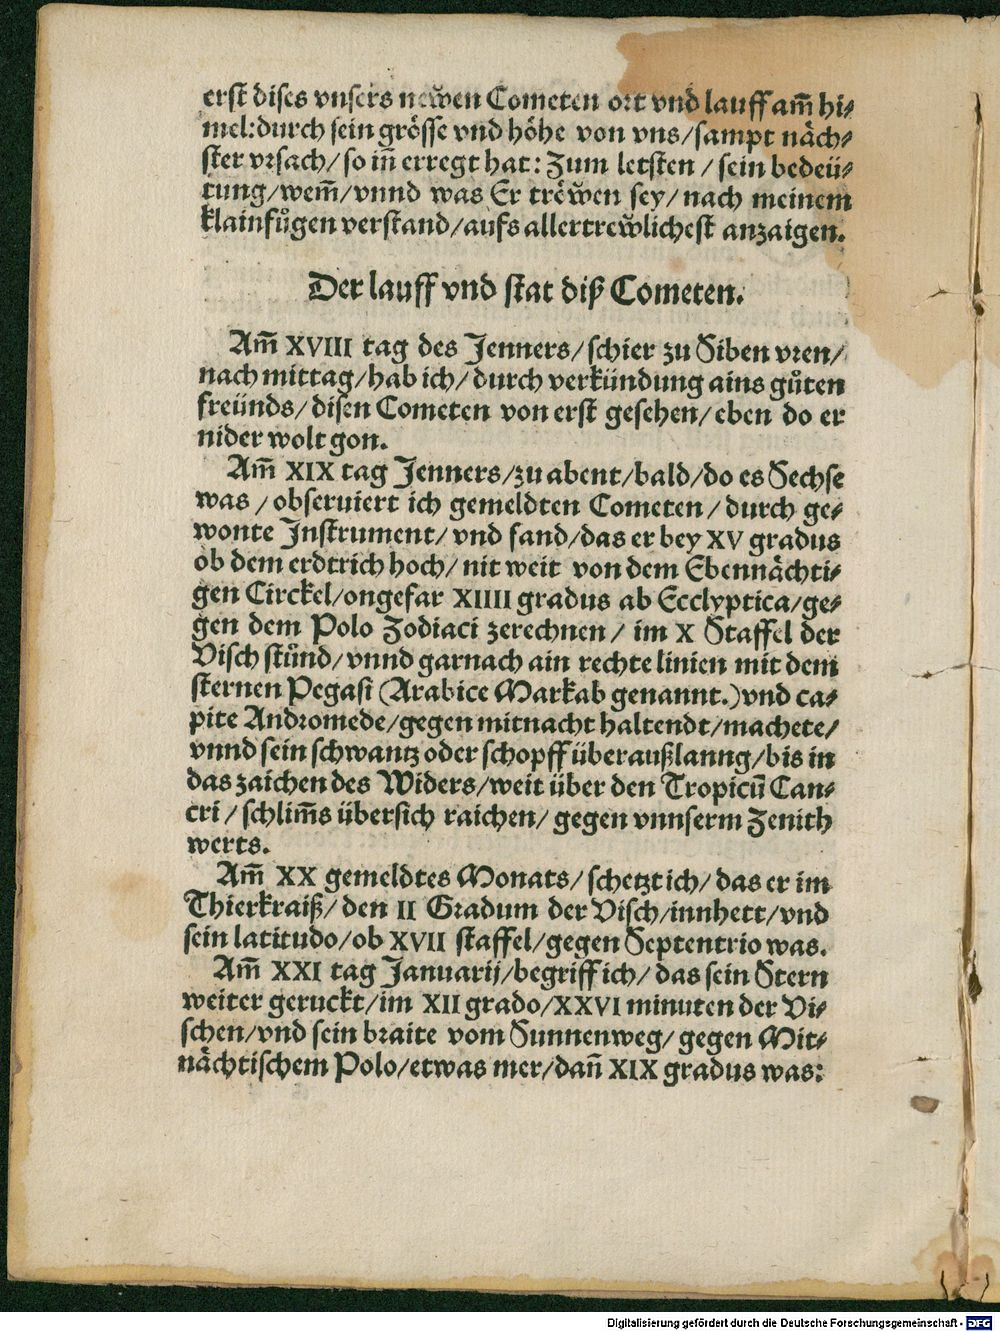 erst dises vnsers newen Cometen ort vnd lauff am̅ hi⸗
mel: durch sein grösse vnd höhe von vns/ sampt näch⸗
ster vrsach/ so in̅ erregt hat: Zum letsten / sein bedeü⸗
tung/ wem̅/ vnnd was Er tröwen sey/ nach meinem
klainfůgen verstand/ aufs allertrewlichest anzaigen.
Der lauff vnd stat diß Cometen.
Am̅ XVIII tag des Jenners/ schier zu Siben vren/
nach mittag/ hab ich/ durch verkündung ains gůten
freünds/ disen Cometen von erst gesehen/ eben do er
nider wolt gon.
Am̅ XIX tag Jenners/ zu abent/ bald/ do es Sechse
was / obseruiert ich gemeldten Cometen/ durch ge⸗
wonte Instrument/ vnd fand/ das er bey XV gradus
ob dem erdtrich hoch/ nit weit von dem Ebennächti⸗
gen Circkel/ ongefar XIIII gradus ab Ecclyptica/ ge⸗
gen dem Polo Zodiaci zerechnen/ im X Staffel der
Visch stůnd/ vnnd garnach ain rechte linien mit dem
sternen Pegasi (Arabice Markab genannt.) vnd ca⸗
pite Andromede/ gegen mitnacht haltendt/ machete/
vnnd sein schwantz oder schopff überaußlanng/ bis in
das zaichen des Widers/ weit über den Tropicu̅ Can⸗
cri / schlim̅s übersich raichen/ gegen vnnserm Zenith
werts.
Am̅ XX gemeldtes Monats/ schetzt ich/ das er im
Thierkraiß/ den II Gradum der Visch/ innhett/ vnd
sein latitudo/ ob XVII staffel/ gegen Septentrio was.
Am̅ XXI tag Januarij/ begriff ich/ das sein Stern
weiter geruckt/ im XII grado/ XXVI minuten der Vi⸗
schen/ vnd sein braite vom Sunnenweg/ gegen Mit⸗
nächtischem Polo/ etwas mer/ dan̅ XIX gradus was:
Digitalisierung gefördert durch die Deutsche Forschungsgemeinschaft - DFG